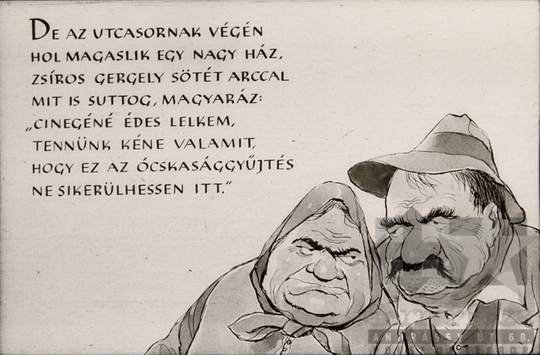 DE AZ UTCASORNAK VÉGÉN
HOL MAGASLIK EGY NAGY HÁZ,
ZSÍROS GERGELY SÖTÉT ARCCAL
MIT IS SUTTOG, MAGYARÁZ:
„CINEGÉNÉ ÉDES LELKEM,
TENNÜNK KÉNE VALAMIT,
HOGY EZ AZ ÓCSKASÁGGYŰJTÉS
NE SIKERÜLHESSEN ITT.”
ANDRÁSSY ÚT 60.